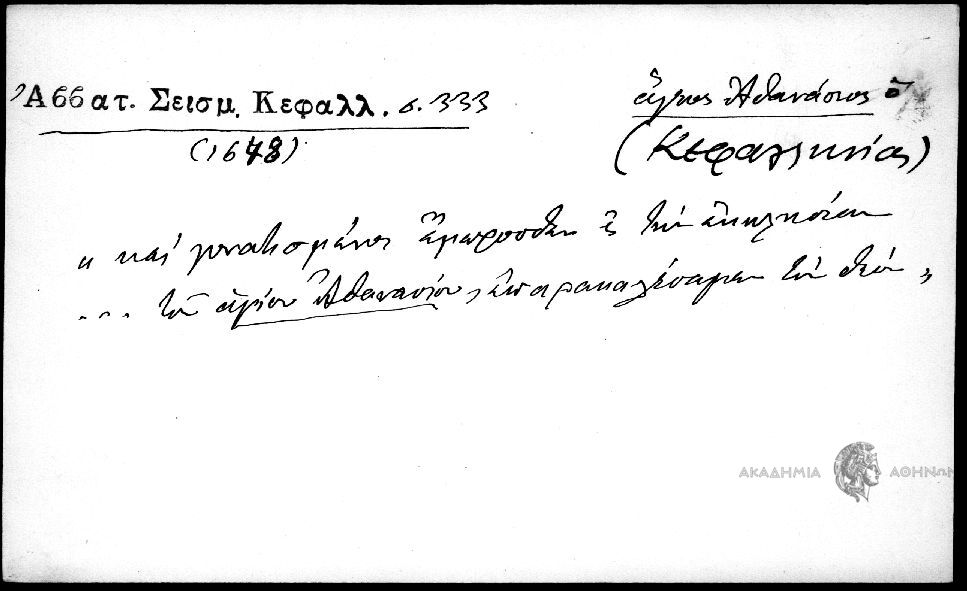 Ἀββατ. Σεισμ. Κεφαλλ. σ. 333
(1678)
ἅγιος Ἀθανάσιος ὁ
(Κεφαλληνίας)
" καὶ γονατισμένοι ἔμπροσθεν εἰς τὴν ἐκκλησίαν
... τοῦ ἁγίου Ἀθανασίου, ἐπαρακαλέσαμεν τὸν Θεόν "
ΑΚΑΔΗΜΙΑ ΑΘΗΝΩΝ